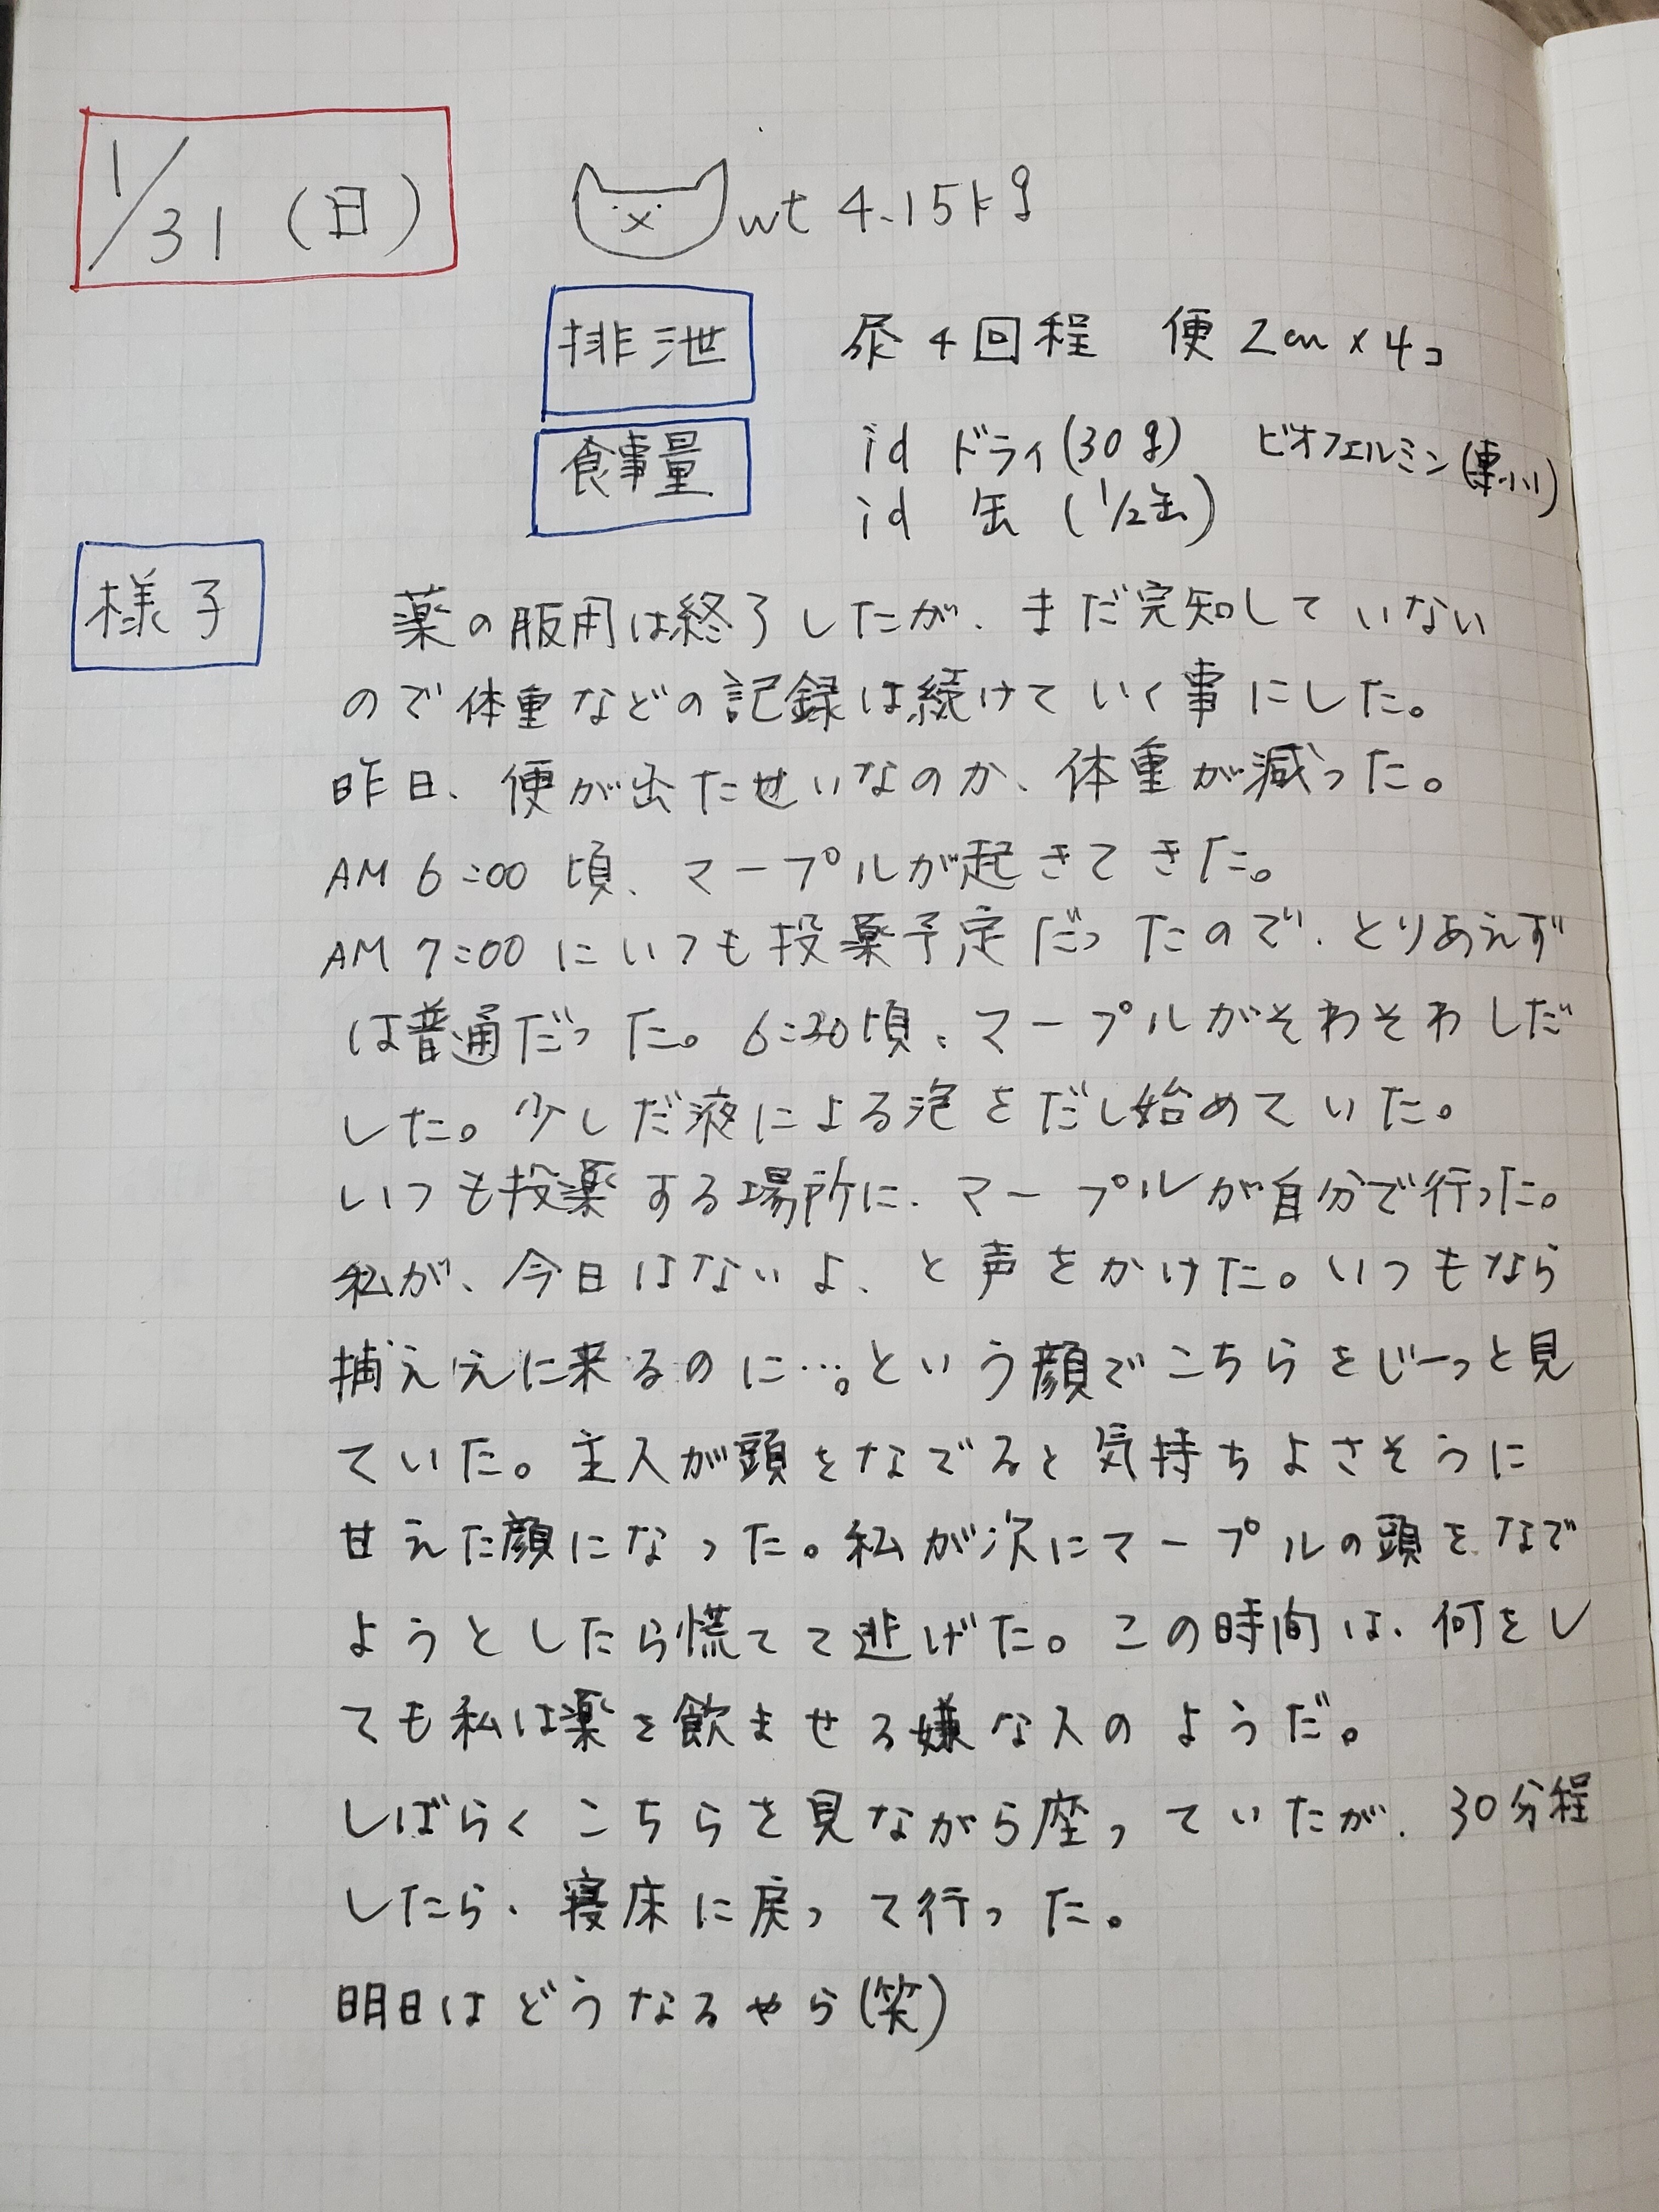 1/31 (日)
wt 4.15kg
排泄 尿4回程 便2cm×4コ
食事量 id ドライ(30g) ビオフェルミン
id 缶 (1/2缶)
様子 薬の服用は終了したが、まだ完知していない
ので体重などの記録は続けていく事にした。
昨日、便が出たせいなのか、体重が減った。
AM 6:00 頃、マープルが起きてきた。
AM 7:00 にいつも投薬予定だったので、とりあえず
は普通だった。6:30頃、マープルがそわそわしだ
した。少しだ液による泡をだし始めていた。
いつも投薬する場所に、マープルが自分で行った。
私が、今日はないよ、と声をかけた。いつもなら
捕ええに来るのに…。という顔でこちらをじーっと見
ていた。主人が頭をなでると気持ちよさそうに
甘えた顔になった。私が次にマープルの頭をなで
ようとしたら慌てて逃げた。この時間は、何をし
ても私は薬を飲ませる嫌な人のようだ。
しばらくこちらを見ながら座っていたが、30分程
したら、寝床に戻って行った。
明日はどうなるやら(笑)